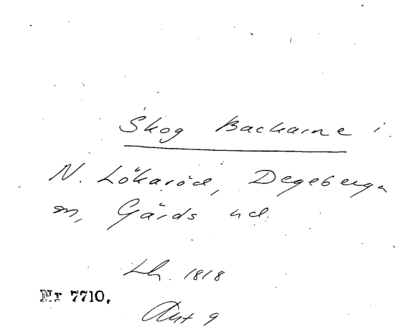 Skog Backarne i
N. Lökaröd, Degeberga
sn, Gärds hd.
Lh. 1818
Nr 7710,
Akt 9